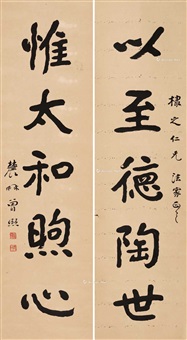 以至德陶世
棣之仁兄法家正之
惟太和煦心
農髯曾熙